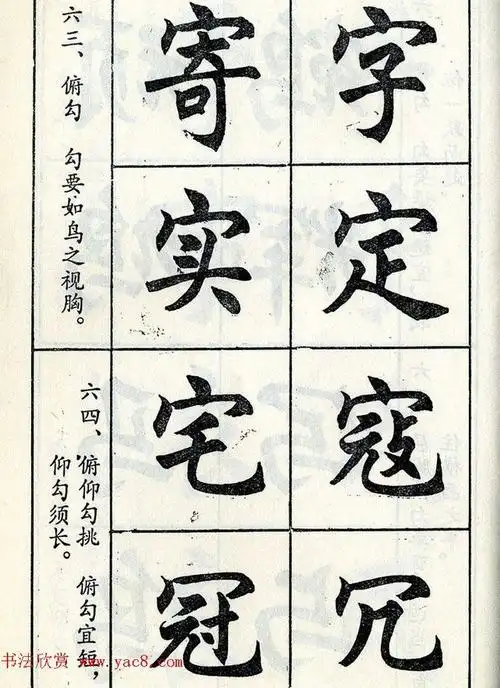 六三、俯勾　勾要如鸟之视胸。
字定
寄实
六四、俯仰勾挑　俯勾宜短，
仰勾须长。
寇冗
宅冠
书法欣赏 www.yac8.com